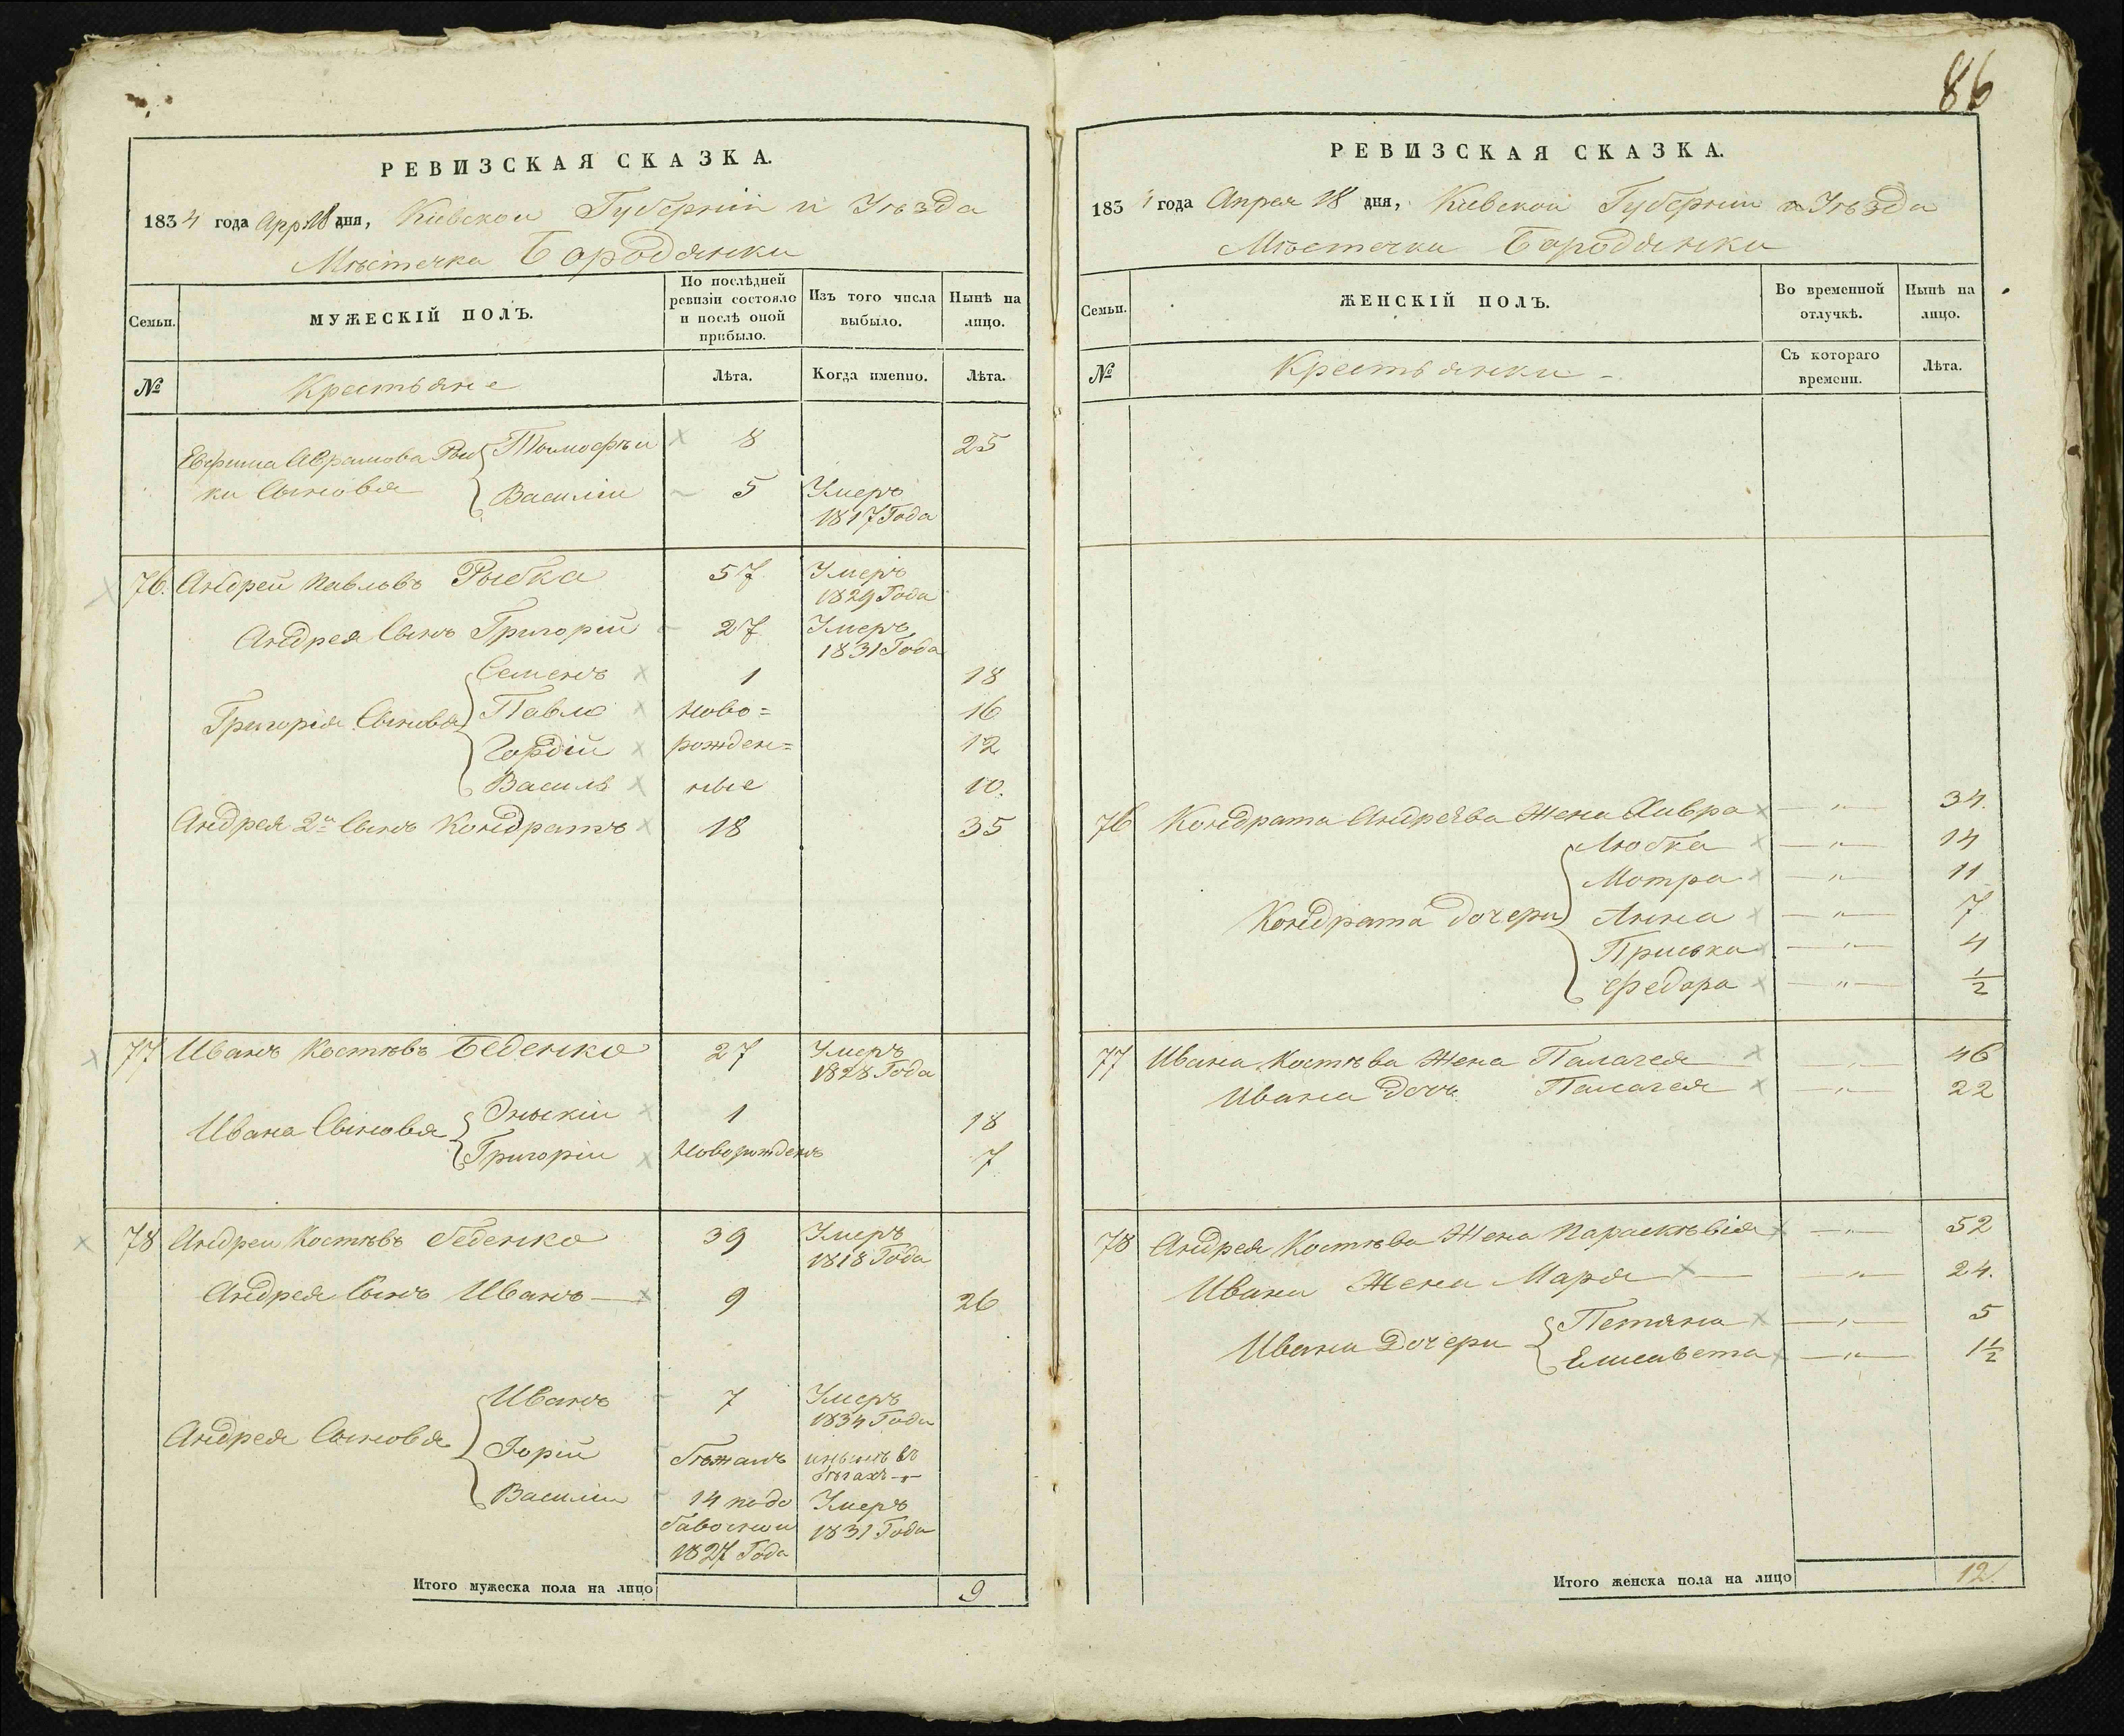 86
РЕВИЗСКАЯ СКАЗКА.
1834 года Апр. 18 дня, Кіевской Губерніи и Уѣзда
Мѣстечка Бородянки
Семьи.
МУЖЕСКІЙ ПОЛЪ.
По послѣдней
ревизіи состояло
и послѣ оной
прибыло.
Изъ того числа
выбыло.
Нынѣ на
лицо.
№
Крестьяне
Лѣта.
Когда именно.
Лѣта.
Ефима Аврамова Рыб Тимофѣй 8 25
ки Сыновья Василій 5 Умеръ
1817 Года
76. Андрей Павловъ Рыбка 57 Умеръ
1829 Года
Андрея Сынъ Григорій 27 Умеръ
1831 Года
Семенъ 1 18
Григорія Сыновья Павло Ново= 16
Гордій рожден= 12
Василь ные 10.
Андрея 2й Сынъ Кондратъ 18 35
77 Иванъ Костѣвъ Беденко 27 Умеръ
1828 Года
Ивана Сыновья 1 18
Григорій Новорожденъ 7
78 Андрей Костѣвъ Беденко 39 Умеръ
1818 Года
Андрея Сынъ Иванъ 9 26
Иванъ 7 Умеръ
1834 Года
Андрея Сыновья Юрій бѣжалъ инынѣ въ
бѣгахъ
Василій 14 Умеръ
1827 Года 1831 Года
Итого мужеска пола на лицо 9
РЕВИЗСКАЯ СКАЗКА.
1834 года Апреля 18 дня, Кіевской Губерніи и Уѣзда
Мѣстечка Бородянки
Семьи.
ЖЕНСКІЙ ПОЛЪ.
Во временной
отлучкѣ.
Нынѣ на
лицо.
№
Крестьянки
Съ котораго
времени.
Лѣта.
76 Кондрата Андреева Жена Хивра — " — 34.
Любка — " — 14
Мотра — " — 11
Кондрата дочери Анна — " — 7
Приська — " — 4
Федора — " — ½
77 Ивана Костѣва Жена Палагея — " — 46
Ивана Дочь Палагея — " — 22
78 Андрея Костѣва Жена Параскѣвія — " — 52
Ивана Жена Марья — " — 24.
Ивана Дочери Тетяна — " — 5
Елисавета — " — 1½
Итого женска пола на лицо 12.